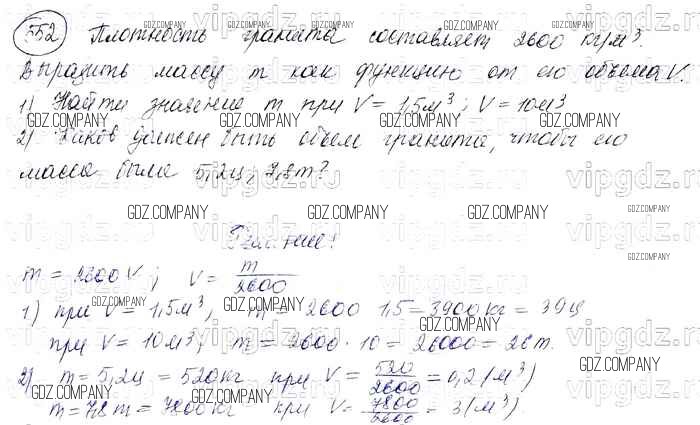 552) Плотность гранита составляет 2600 кг/м³.
Выразить массу m как функцию от его объема V.
1) Найти значение m при V = 1,5 м³; V = 10 м³
2) Каков должен быть объем гранита, чтобы его
масса была 5,2ц; 7,8т?
Решение:
m = 2600 V; V = m/2600
1) при V = 1,5 м³, m = 2600 1,5 = 3900 кг = 39 ц
при V = 10 м³; m = 2600 · 10 = 26000 = 26 т.
2) m = 5,2ц = 520 кг при V = 520/2600 = 0,2 (м³)
m = 7,8 т = 7800 кг при V = 7800/2600 = 3 (м³)